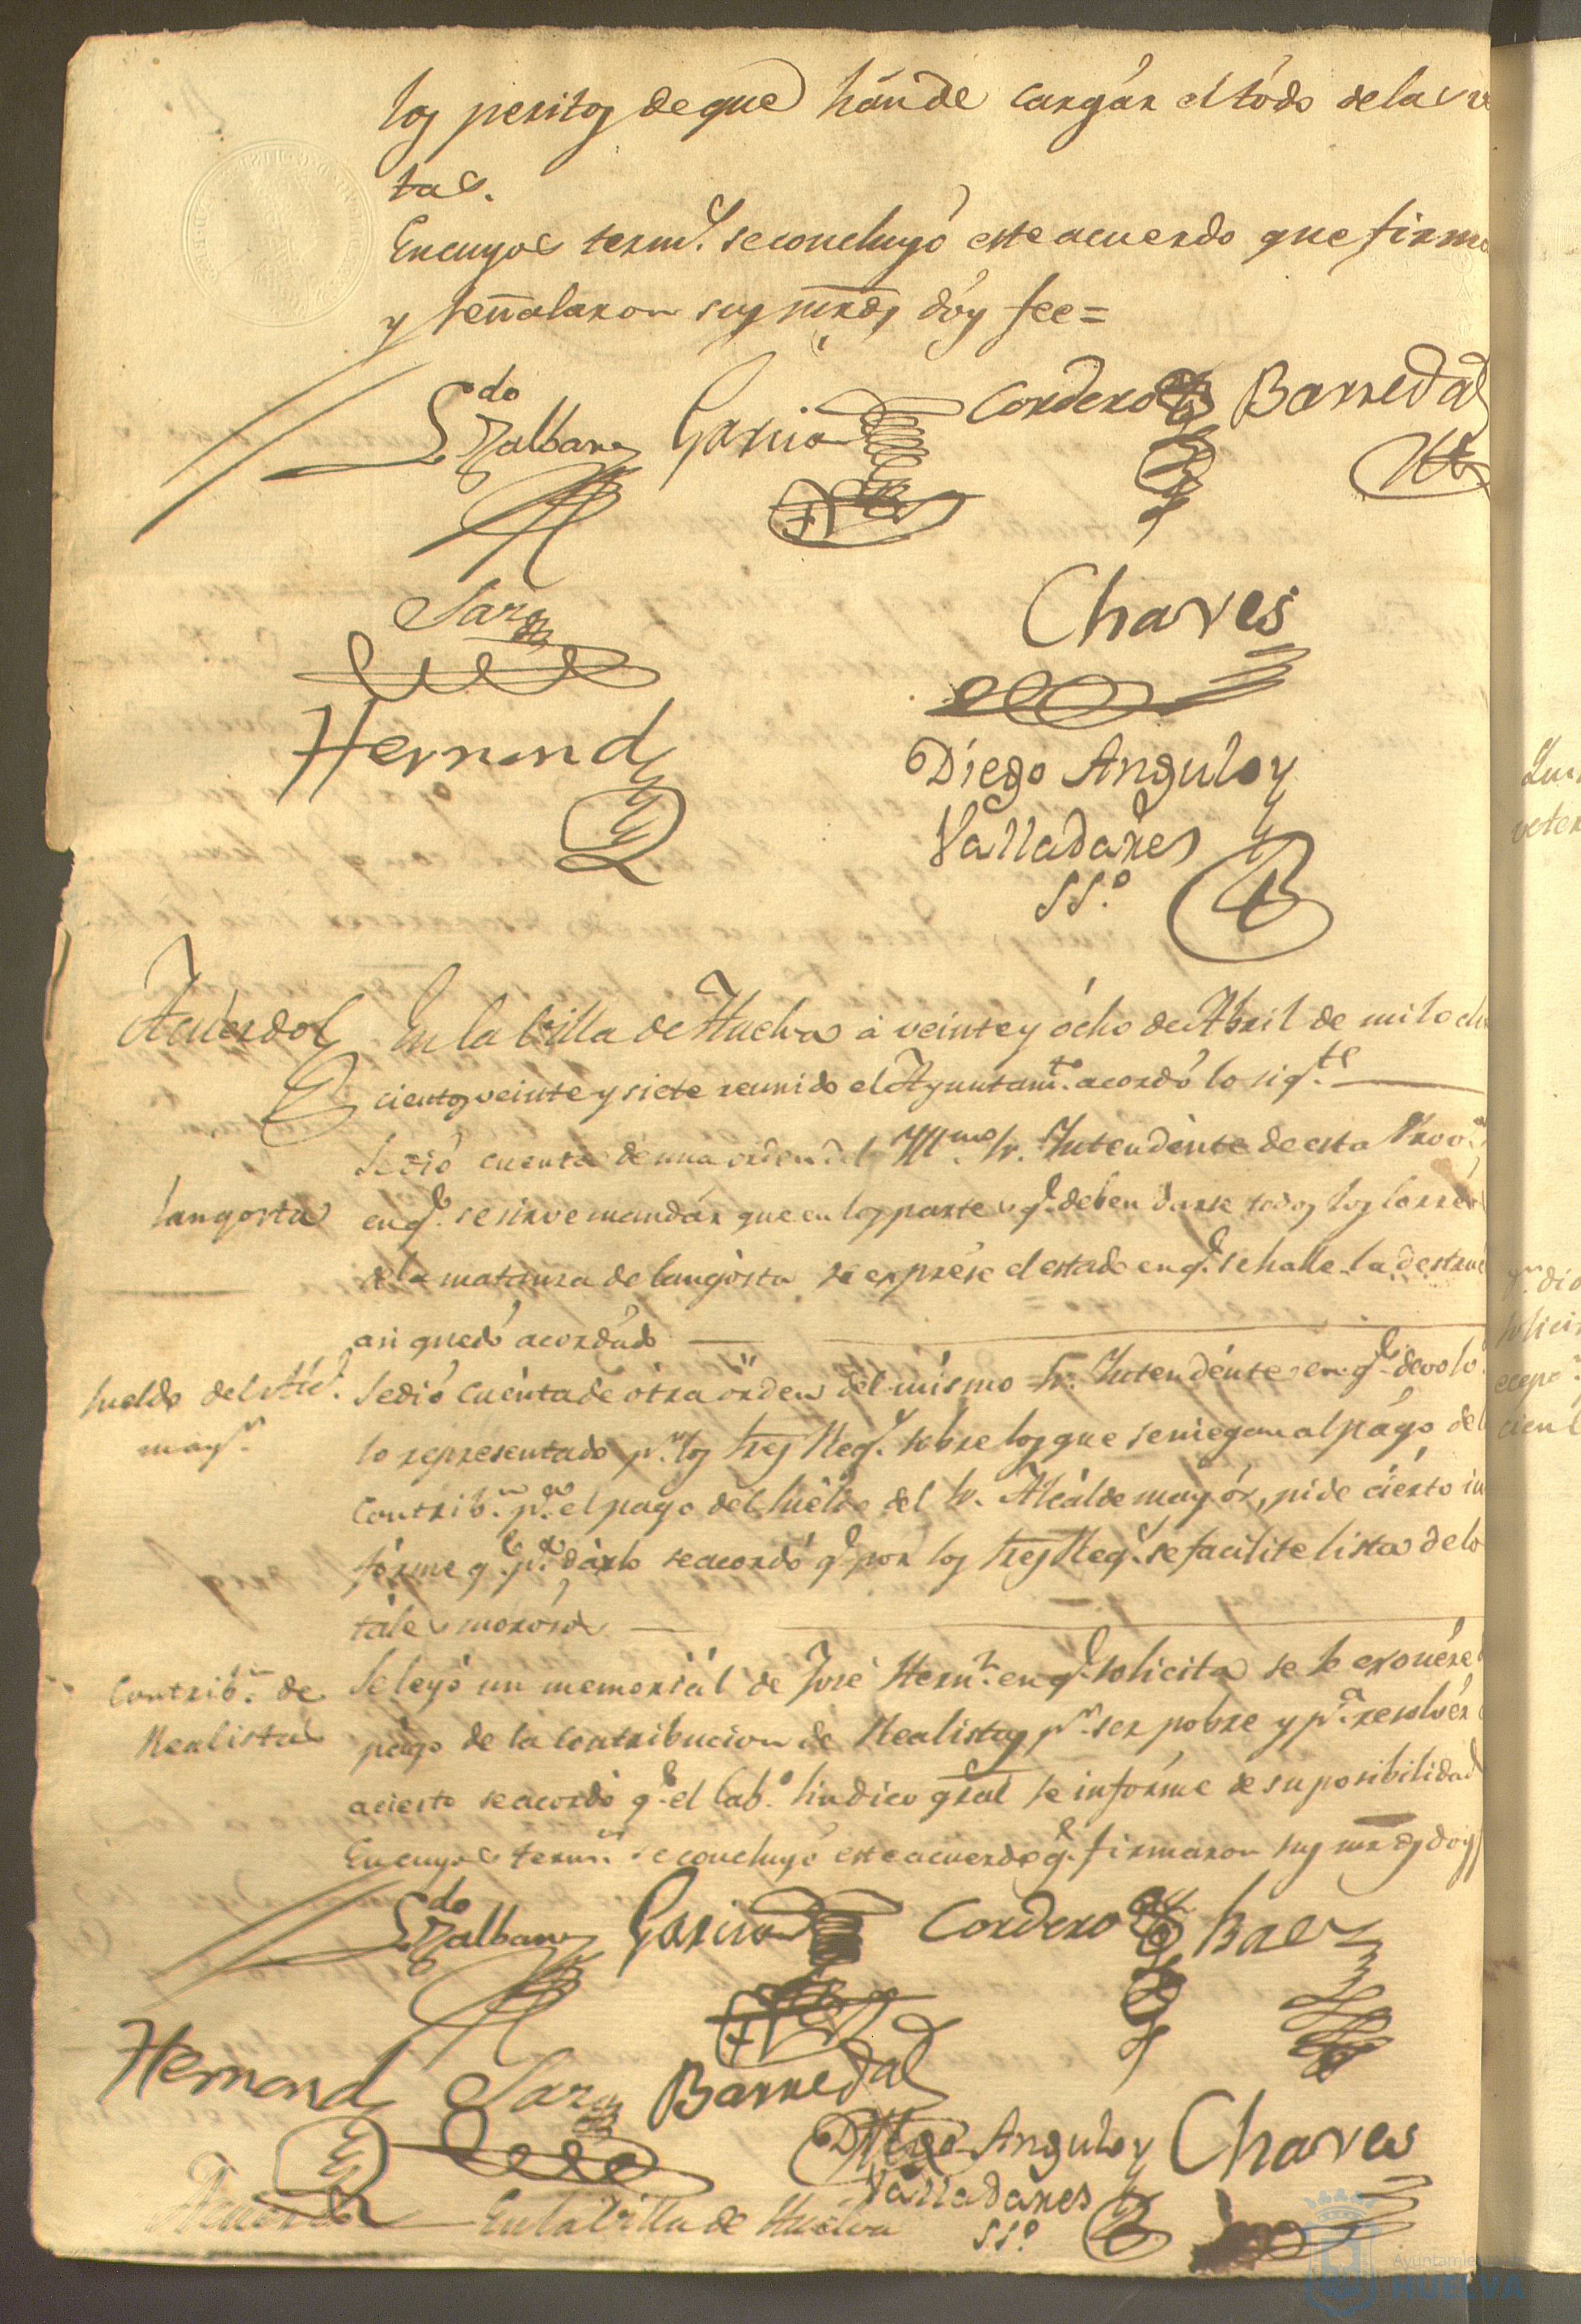 los peritos de que hán de cargár el tódo de las
tas.
En cuyos term.s se concluyó este acuerdo que firma
y señalaron sus mrds, dóy fee=
Ldo Galban
Garcia
Cordero
Barreda
Jara
Chaves
Hernand
Diego Angulo y
Valladares
SS.o
Acuerdo
En la Villa de Huelva á veinte y ócho de Abril de mil ocho
cientos veinte y siete reunido el Ayuntam.to acordó lo sig.te
Se dió cuenta de una orden del Yll.mo Sr. Intendente de esta Prov.a
langosta
en q.e se sirve mandár que en los partes q.e deben darse todos los correos
de la matanza de langósta se exprése el estado en q.e se halle la destruc
asi quedó acordádo
Sueldo del Alc.
may.r
Se dió cuénta de ótra orden del mísmo Sr. Intendénte en q.e devolv
lo representado p.r los tres Reg.s sobre los que se niegan al págo de la
Contrib.n p.a el pago del Suéldo del Sr. Alcálde mayór, pide ciérto in
fórme q.e p.a dárlo se acordó q.e por los tres Reg.s se facilite lista de lo
táles morósos
Contrib.n de
Realistas
Se leyó un memoriál de José Hern.z en q.e solicita se le exonére
págo de la Contribucion de Realistas p.r ser pobre y p.a resolvér
acierto se acordó q.e el Cab.o Sindico gral se infórme de su posibilidad
En cuyos term.s se concluyó este acuerdo q.e firmaron sus mrds doy f
Ldo Galban
Garcia
Cordero
Baez
Hernand
Jara
Barreda
Diego Angulo y
Valladares
SS.o
Chaves
Acuerdo
En la Villa de Huelva
Ayuntamiento de
HUELVA